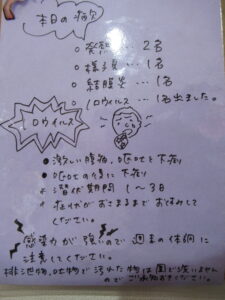 本日の病欠
○ 発熱 … 2名
○ 様子見 … 1名
○ 結膜炎 … 1名
○ ノロウイルス … 1名出ました。
ノロウイルス
● 激しい腹痛、嘔吐と下痢
● 嘔吐の後に下痢
潜伏期間 1〜3日
症状がおさまるまでお休みして
ください。
感染力が強いので週末の体調に
注意してください。
排泄物、吐物で汚れた物は園で洗いません
のでご承知おきください。